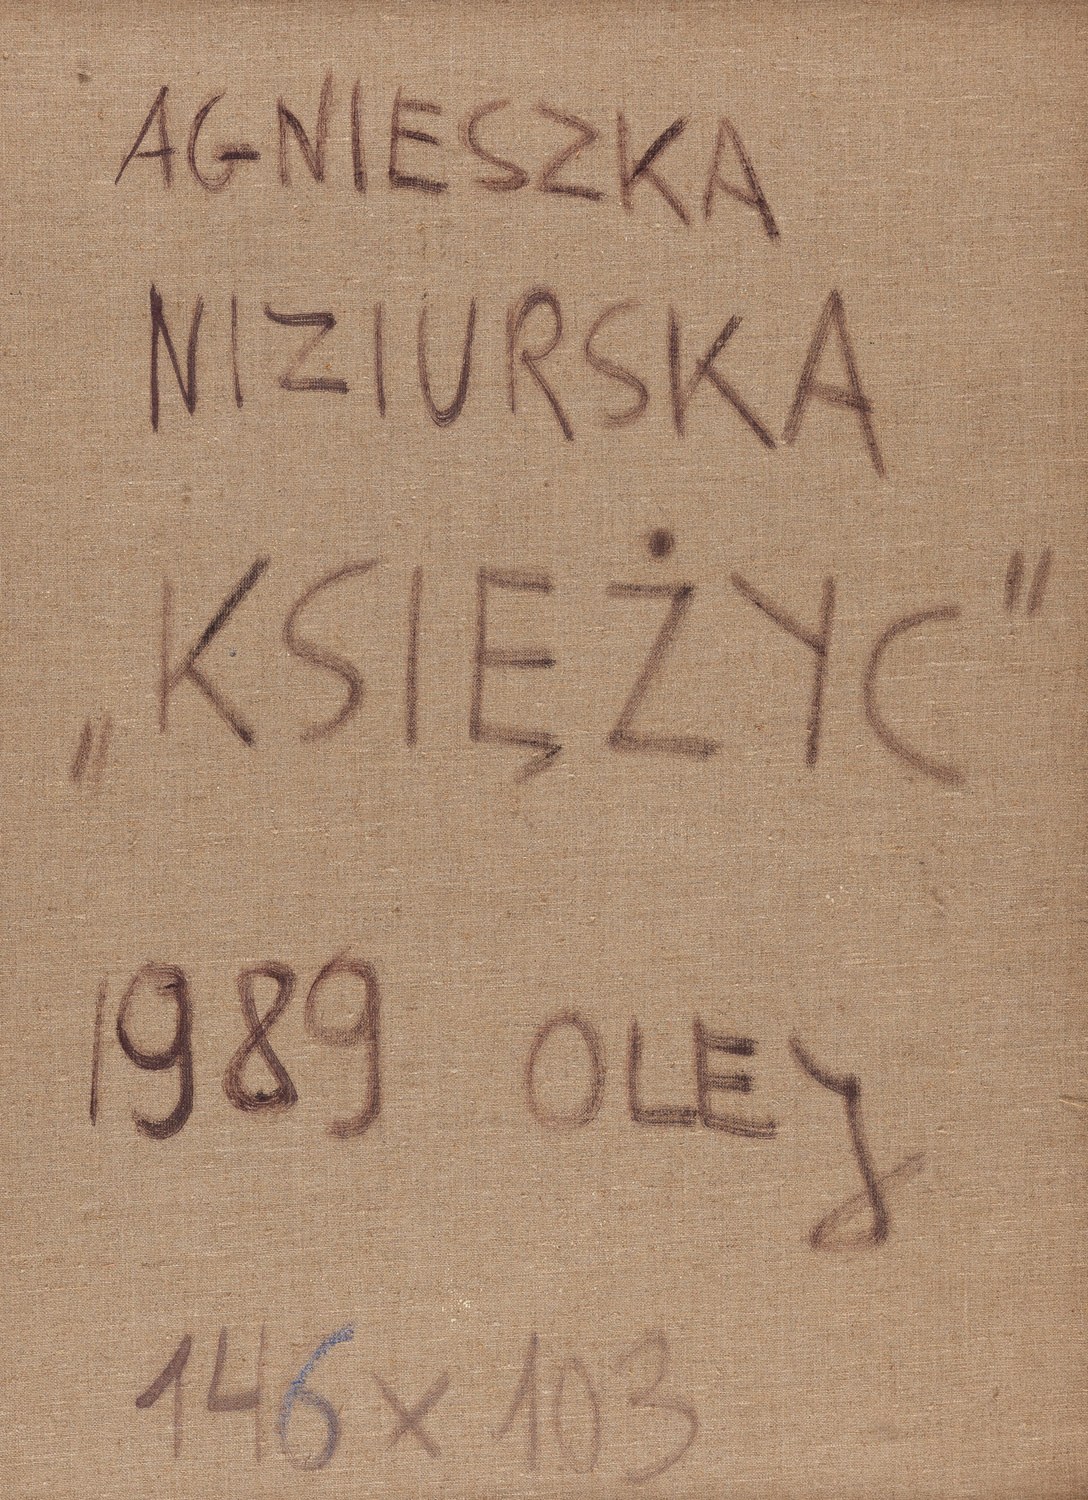 AGNIESZKA
NIZIURSKA
„KSIĘŻYC"
1989 OLEJ
146 x 103